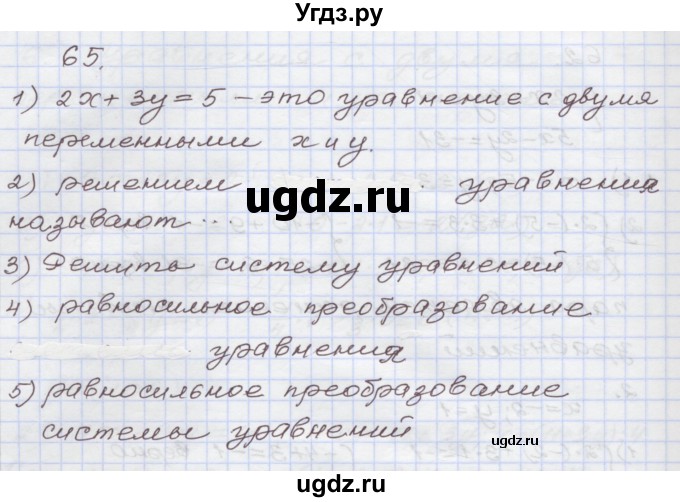 Угдз.ру
65.
1) 2x + 3y = 5 – это уравнение с двумя
переменными x и y.
2) решением ... уравнения
называют ...
3) Решить систему уравнений
4) равносильное преобразование
уравнения
5) равносильное преобразование
системы уравнений
ugdz.ru
ugdz.ru
ugdz.ru
ugdz.ru
ugdz.ru